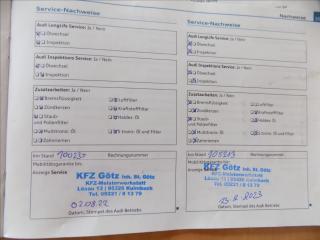 Service-Nachweise
Audi LongLife Service: Ja / Nein
Ölwechsel
Inspektion
Audi Inspektions Service: Ja / Nein
Ölwechsel
Inspektion
Zusatzarbeiten: Ja / Nein
Bremsflüssigkeit
Luftfilter
Zündkerzen
Kraftstofffilter
Staub- und Pollenfilter
Haldex. Öl
Multitronic. Öl
S tronic. Öl und Filter
km Stand
Rechnungsnummer
Mobilitätsgarantie bis
Anzeige Service
KFZ Götz Inh. St. Götz
KFZ-Meisterwerkstatt
Lösau 12 / 95326 Kulmbach
Tel. 09221 / 8 13 79
02.08.22
Datum, Stempel des Audi Betriebs
Service-Nachweise
Nachweise
Audi LongLife Service: Ja / Nein
Ölwechsel
Inspektion
Audi Inspektions Service: Ja / Nein
Ölwechsel
Inspektion
Zusatzarbeiten: Ja / Nein
Bremsflüssigkeit
Luftfilter
Zündkerzen
Kraftstofffilter
Staub- und Pollenfilter
Haldex. Öl
Multitronic. Öl
S tronic. Öl und Filter
km Stand
Rechnungsnummer
Mobilitätsgarantie bis
Anzeige Service
KFZ Götz Inh. St. Götz
KFZ-Meisterwerkstatt
Lösau 12 / 95326 Kulmbach
Tel. 09221 / 8 13 79
Datum, Stempel des Audi Betriebs